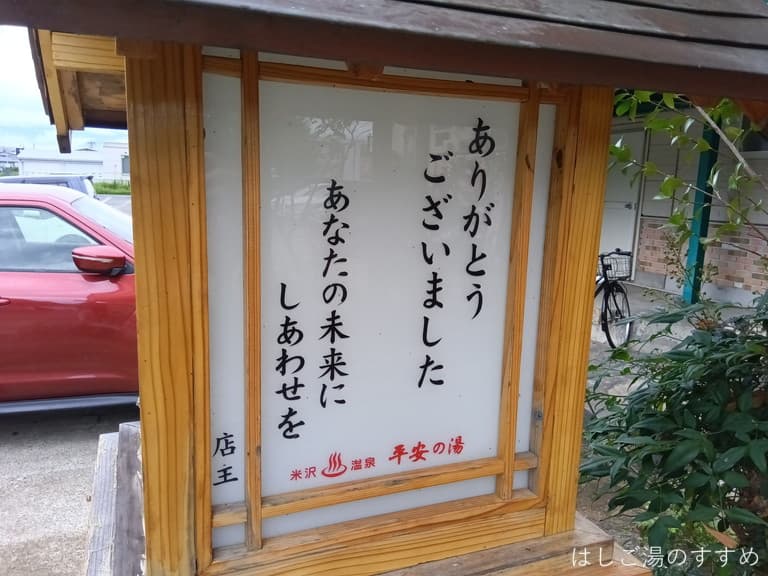 ありがとう
ございました
あなたの未来に
しあわせを
店主
米沢♨温泉 平安の湯
はしご湯のすすめ